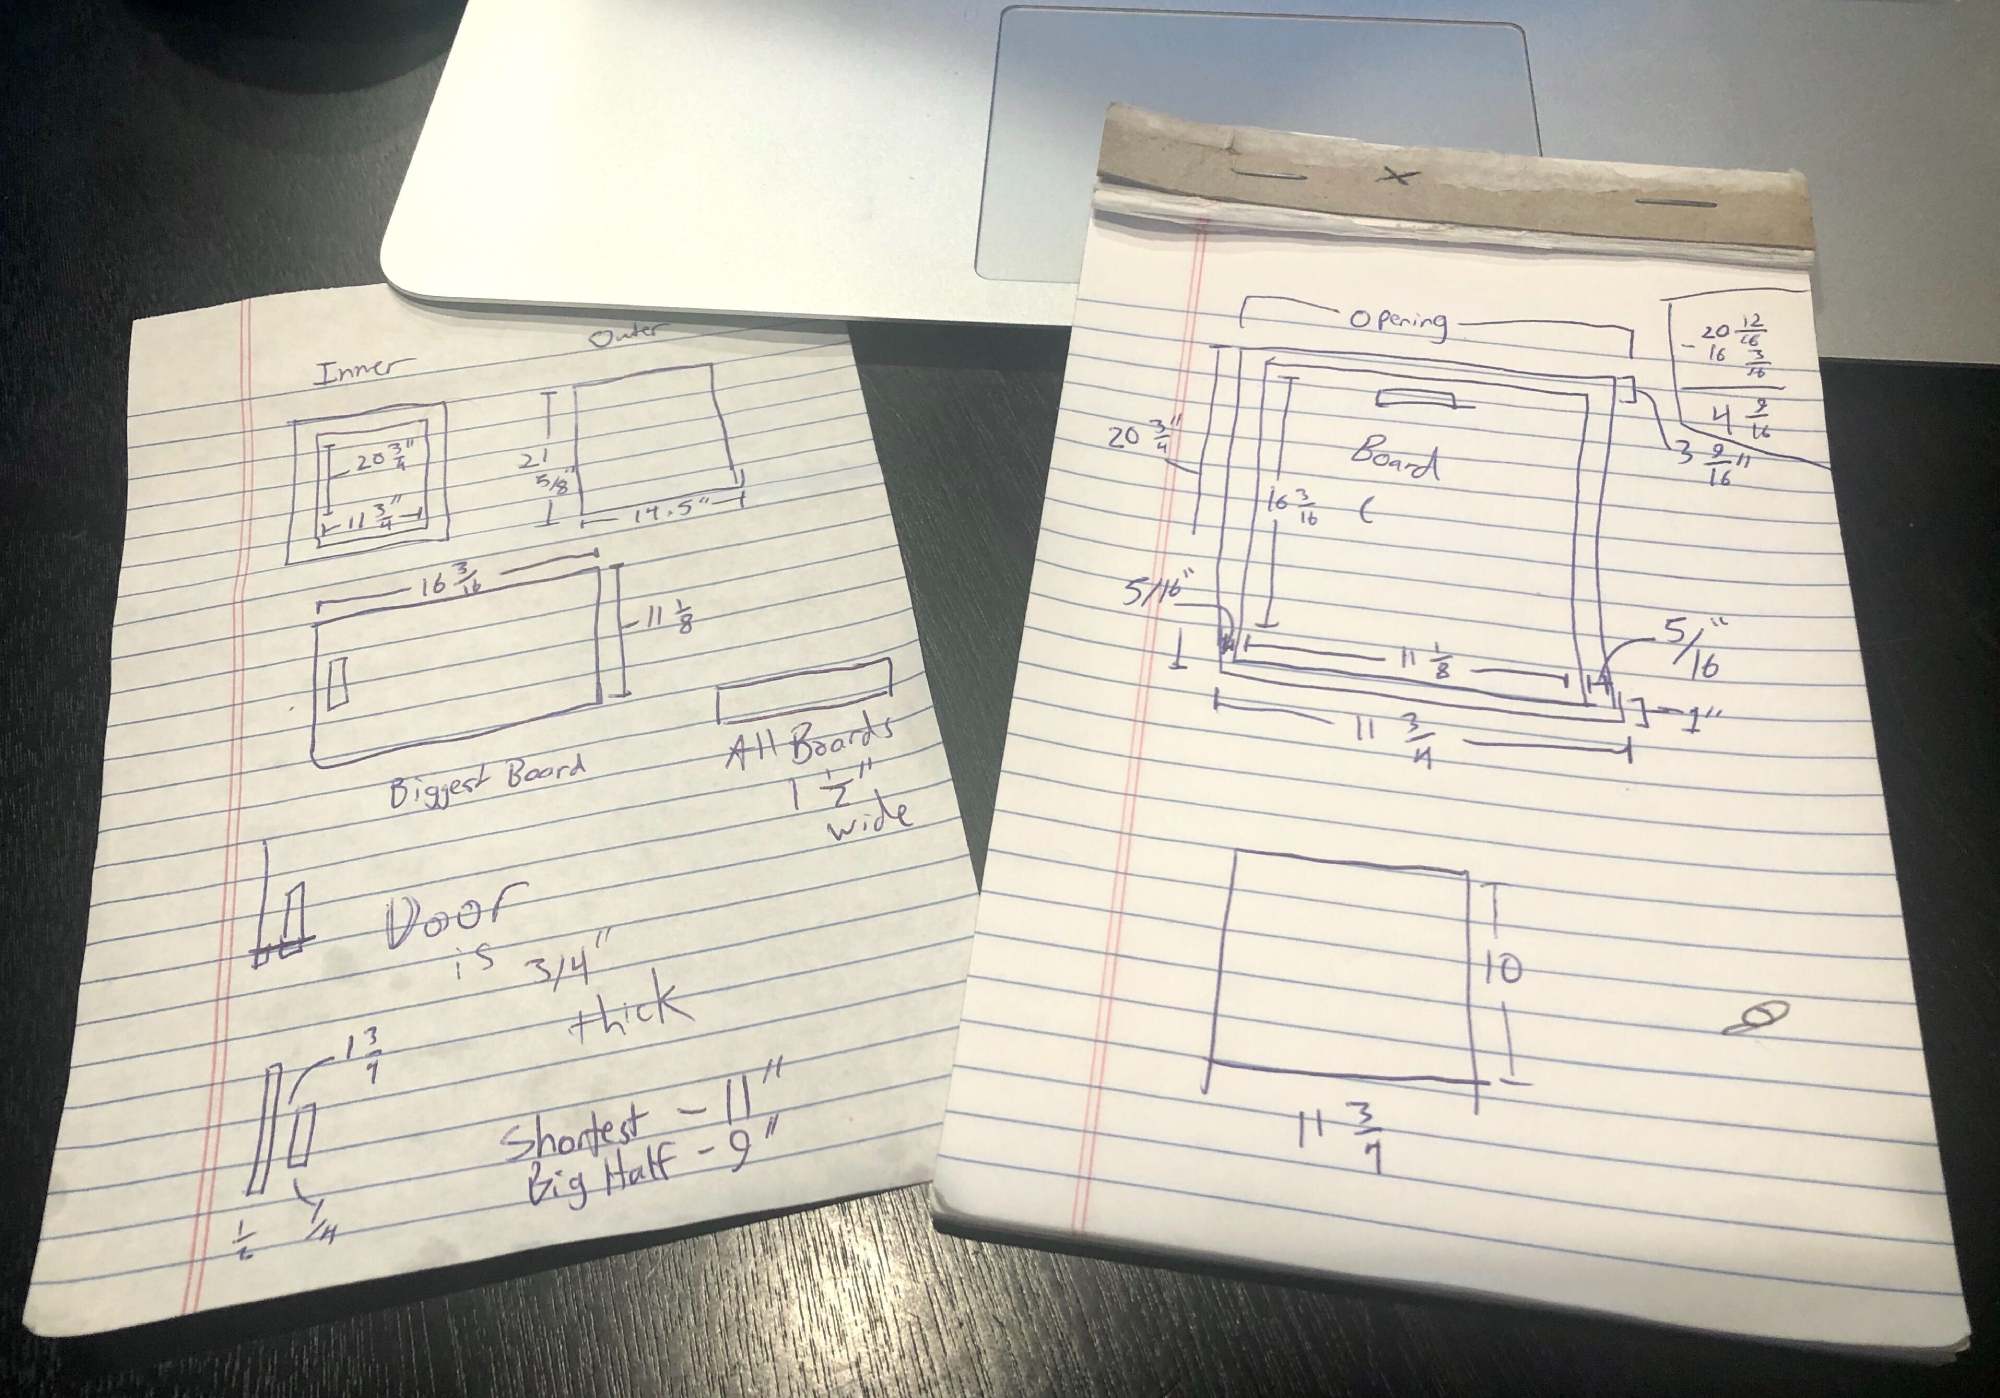 Inner
Outer
20 3/4"
11 3/4"
21 5/8"
14.5"
16 3/16
11 1/8
Biggest Board
All Boards
1 1/2"
wide
Door
is
3/4"
thick
1 3/4
1/2
1/4
Shortest - 11"
Big Half - 9"
x
Opening
20 12/16
- 16 3/16
4 9/16
20 3/4"
Board
3 9/16"
16 3/16
5/16"
11 1/8
5/16"
1"
11 3/4
10
11 3/4